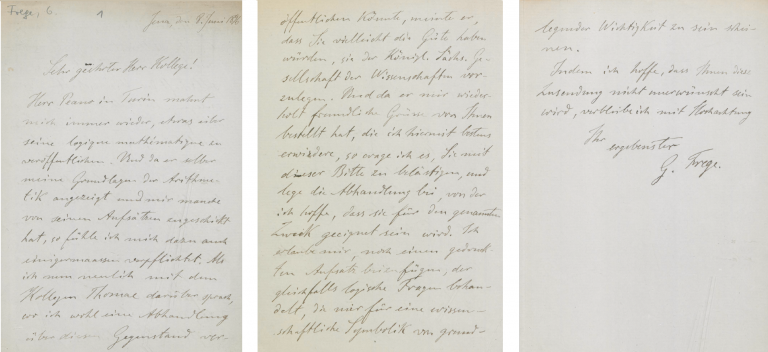 Frege, G.
1
Jena, den 8. Juni
Sehr geehrter Herr Kollege!
Herr Peano in Turin mahnt
mich immer wieder, etwas über
seine logique mathématique zu
veröffentlichen. Und da er selber
meine Grundlagen der Arithme-
tik angezeigt und mir manche
von seinen Aufsätzen zugeschickt
hat, so fühle ich mich dazu auch
einigermaassen verpflichtet. Als
ich nun neulich mit dem
Kollegen Thomae darüber sprach,
wo ich wohl eine Abhandlung
über diesen Gegenstand ver-
öffentlichen könnte, meinte er,
dass Sie vielleicht die Güte haben
würden, sie der Königl. Sächs. Ge-
sellschaft der Wissenschaften vor-
zulegen. Und da er mir wieder-
holt freundliche Grüsse von Ihnen
bestellt hat, die ich hiermit bestens
erwidere, so wage ich es, Sie mit
dieser Bitte zu belästigen, und
lege die Abhandlung bei, von der
ich hoffe, dass sie für den genannten
Zweck geeignet sein wird. Ich
erlaube mir, noch einen gedruck-
ten Aufsatz beizufügen, der
gleichfalls logische Fragen behan-
delt, die mir für eine wissen-
schaftliche Symbolik von grund-
legender Wichtigkeit zu sein schei-
nen.
Indem ich hoffe, dass Ihnen diese
Zusendung nicht unerwünscht sein
wird, verbleibe ich mit Hochachtung
Ihr
ergebenster
G. Frege.